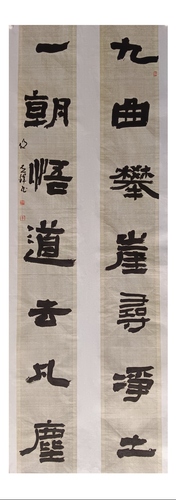 九曲攀崖尋淨土
一朝悟道去凡塵